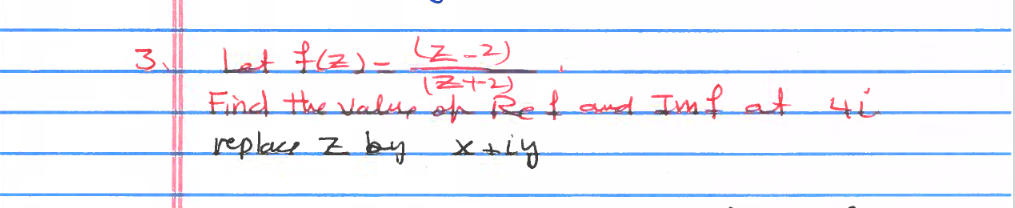 3. Let f(z) = (z-2)
(z+2) .
Find the value of Re f and Im f at 4i
replace z by x+iy